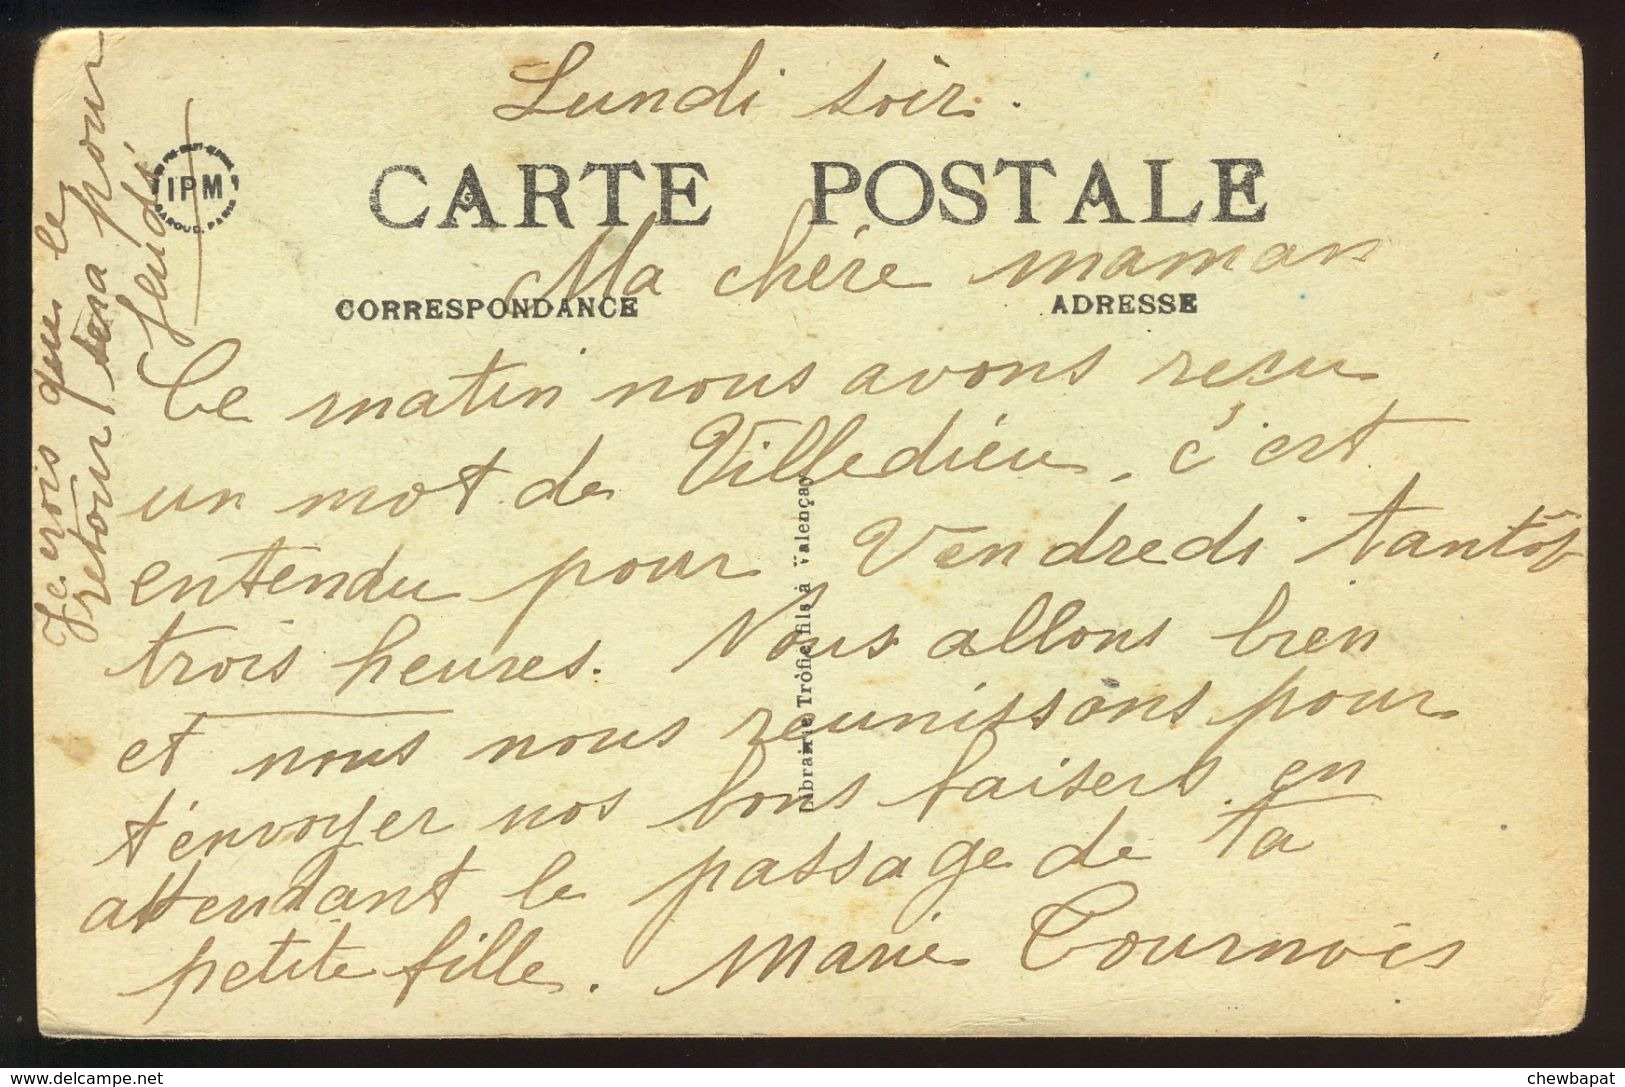 Lundi soir.
CARTE POSTALE
Ma chère maman
CORRESPONDANCE
ADRESSE
Ce matin nous avons reçu
un mot de Villedieu, c'est
entendu pour Vendredi tantôt
trois heures. Nous allons bien
et nous nous reunissons pour
t'envoyer nos bons baisers en
attendant le passage de ta
petite fille. Marie Tournois
Je crois que le
retour sera pour
Jeudi
IPM
Librairie Tròfiel fils à Valençay
delcampe.net
chewbapat